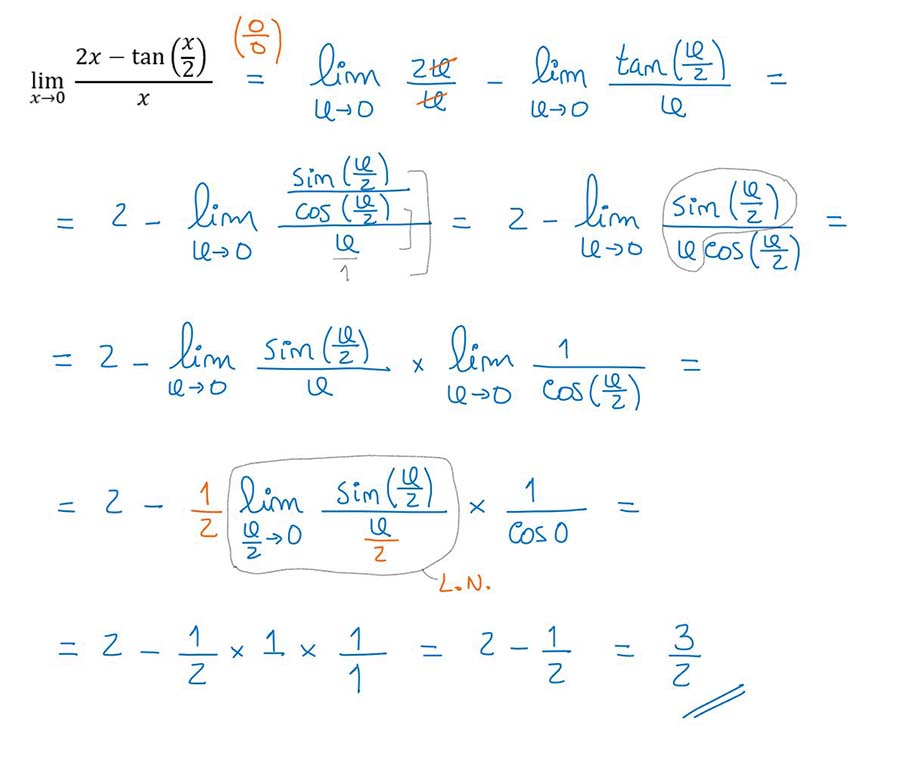 lim x→0 (2x − tan(x/2))/x (0/0) = lim x→0 2x/x − lim x→0 tan(x/2)/x =
= 2 − lim x→0 (sin(x/2)/cos(x/2))/(x/1) = 2 − lim x→0 sin(x/2)/(x cos(x/2)) =
= 2 − lim x→0 sin(x/2)/x × lim x→0 1/cos(x/2) =
= 2 − 1/2 lim x/2→0 sin(x/2)/(x/2) × 1/cos 0 =
L.N.
= 2 − 1/2 × 1 × 1/1 = 2 − 1/2 = 3/2